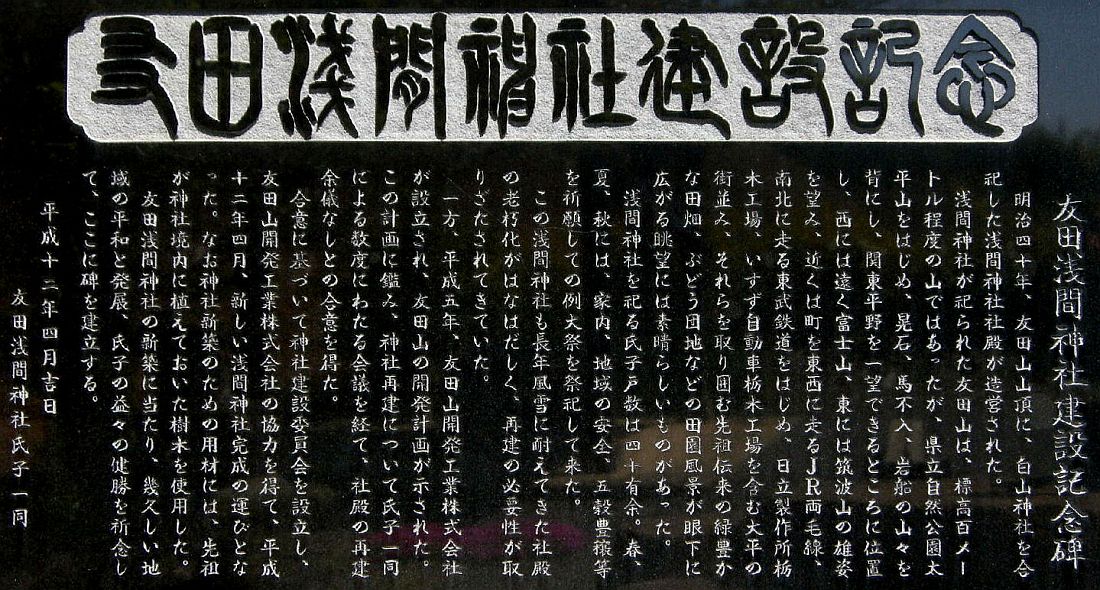 友田浅間神社建設記念
友田浅間神社建設記念碑
明治四十年、友田山山頂に、白山神社を合
祀した浅間神社社殿が造営された。
浅間神社が祀られた友田山は、標高百メー
トル程度の山ではあったが、県立自然公園太
平山をはじめ、晃石、馬不入、岩船の山々を
背にし、関東平野を一望できるところに位置
し、西には遠く富士山、東には筑波山の雄姿
を望み、近くは町を東西に走るJR両毛線、
南北に走る東武鉄道をはじめ、日立製作所栃
木工場、いすず自動車栃木工場を含む大平の
街並み、それらを取り囲む先祖伝来の緑豊か
な田畑、ぶどう団地などの田園風景が眼下に
広がる眺望には素晴らしいものがあった。
浅間神社を祀る氏子戸数は四十有余。春、
夏、秋には、家内、地域の安全、五穀豊穣等
を祈願しての例大祭を祭祀して来た。
この浅間神社も長年風雪に耐えてきた社殿
の老朽化がはなはだしく、再建の必要性が取
りざたされてきていた。
一方、平成五年、友田山開発工業株式会社
が設立され、友田山の開発計画が示された。
この計画に鑑み、神社再建について氏子一同
による数度にわたる会議を経て、社殿の再建
余儀なしとの合意を得た。
合意に基づいて神社建設委員会を設立し、
友田山開発工業株式会社の協力を得て、平成
十二年四月、新しい浅間神社完成の運びとな
った。なお神社新築のための用材には、先祖
が神社境内に植えておいた樹木を使用した。
友田浅間神社の新築に当たり、幾久しい地
域の平和と発展、氏子の益々の健勝を祈念し
て、ここに碑を建立する。
平成十二年四月吉日
友田浅間神社氏子一同